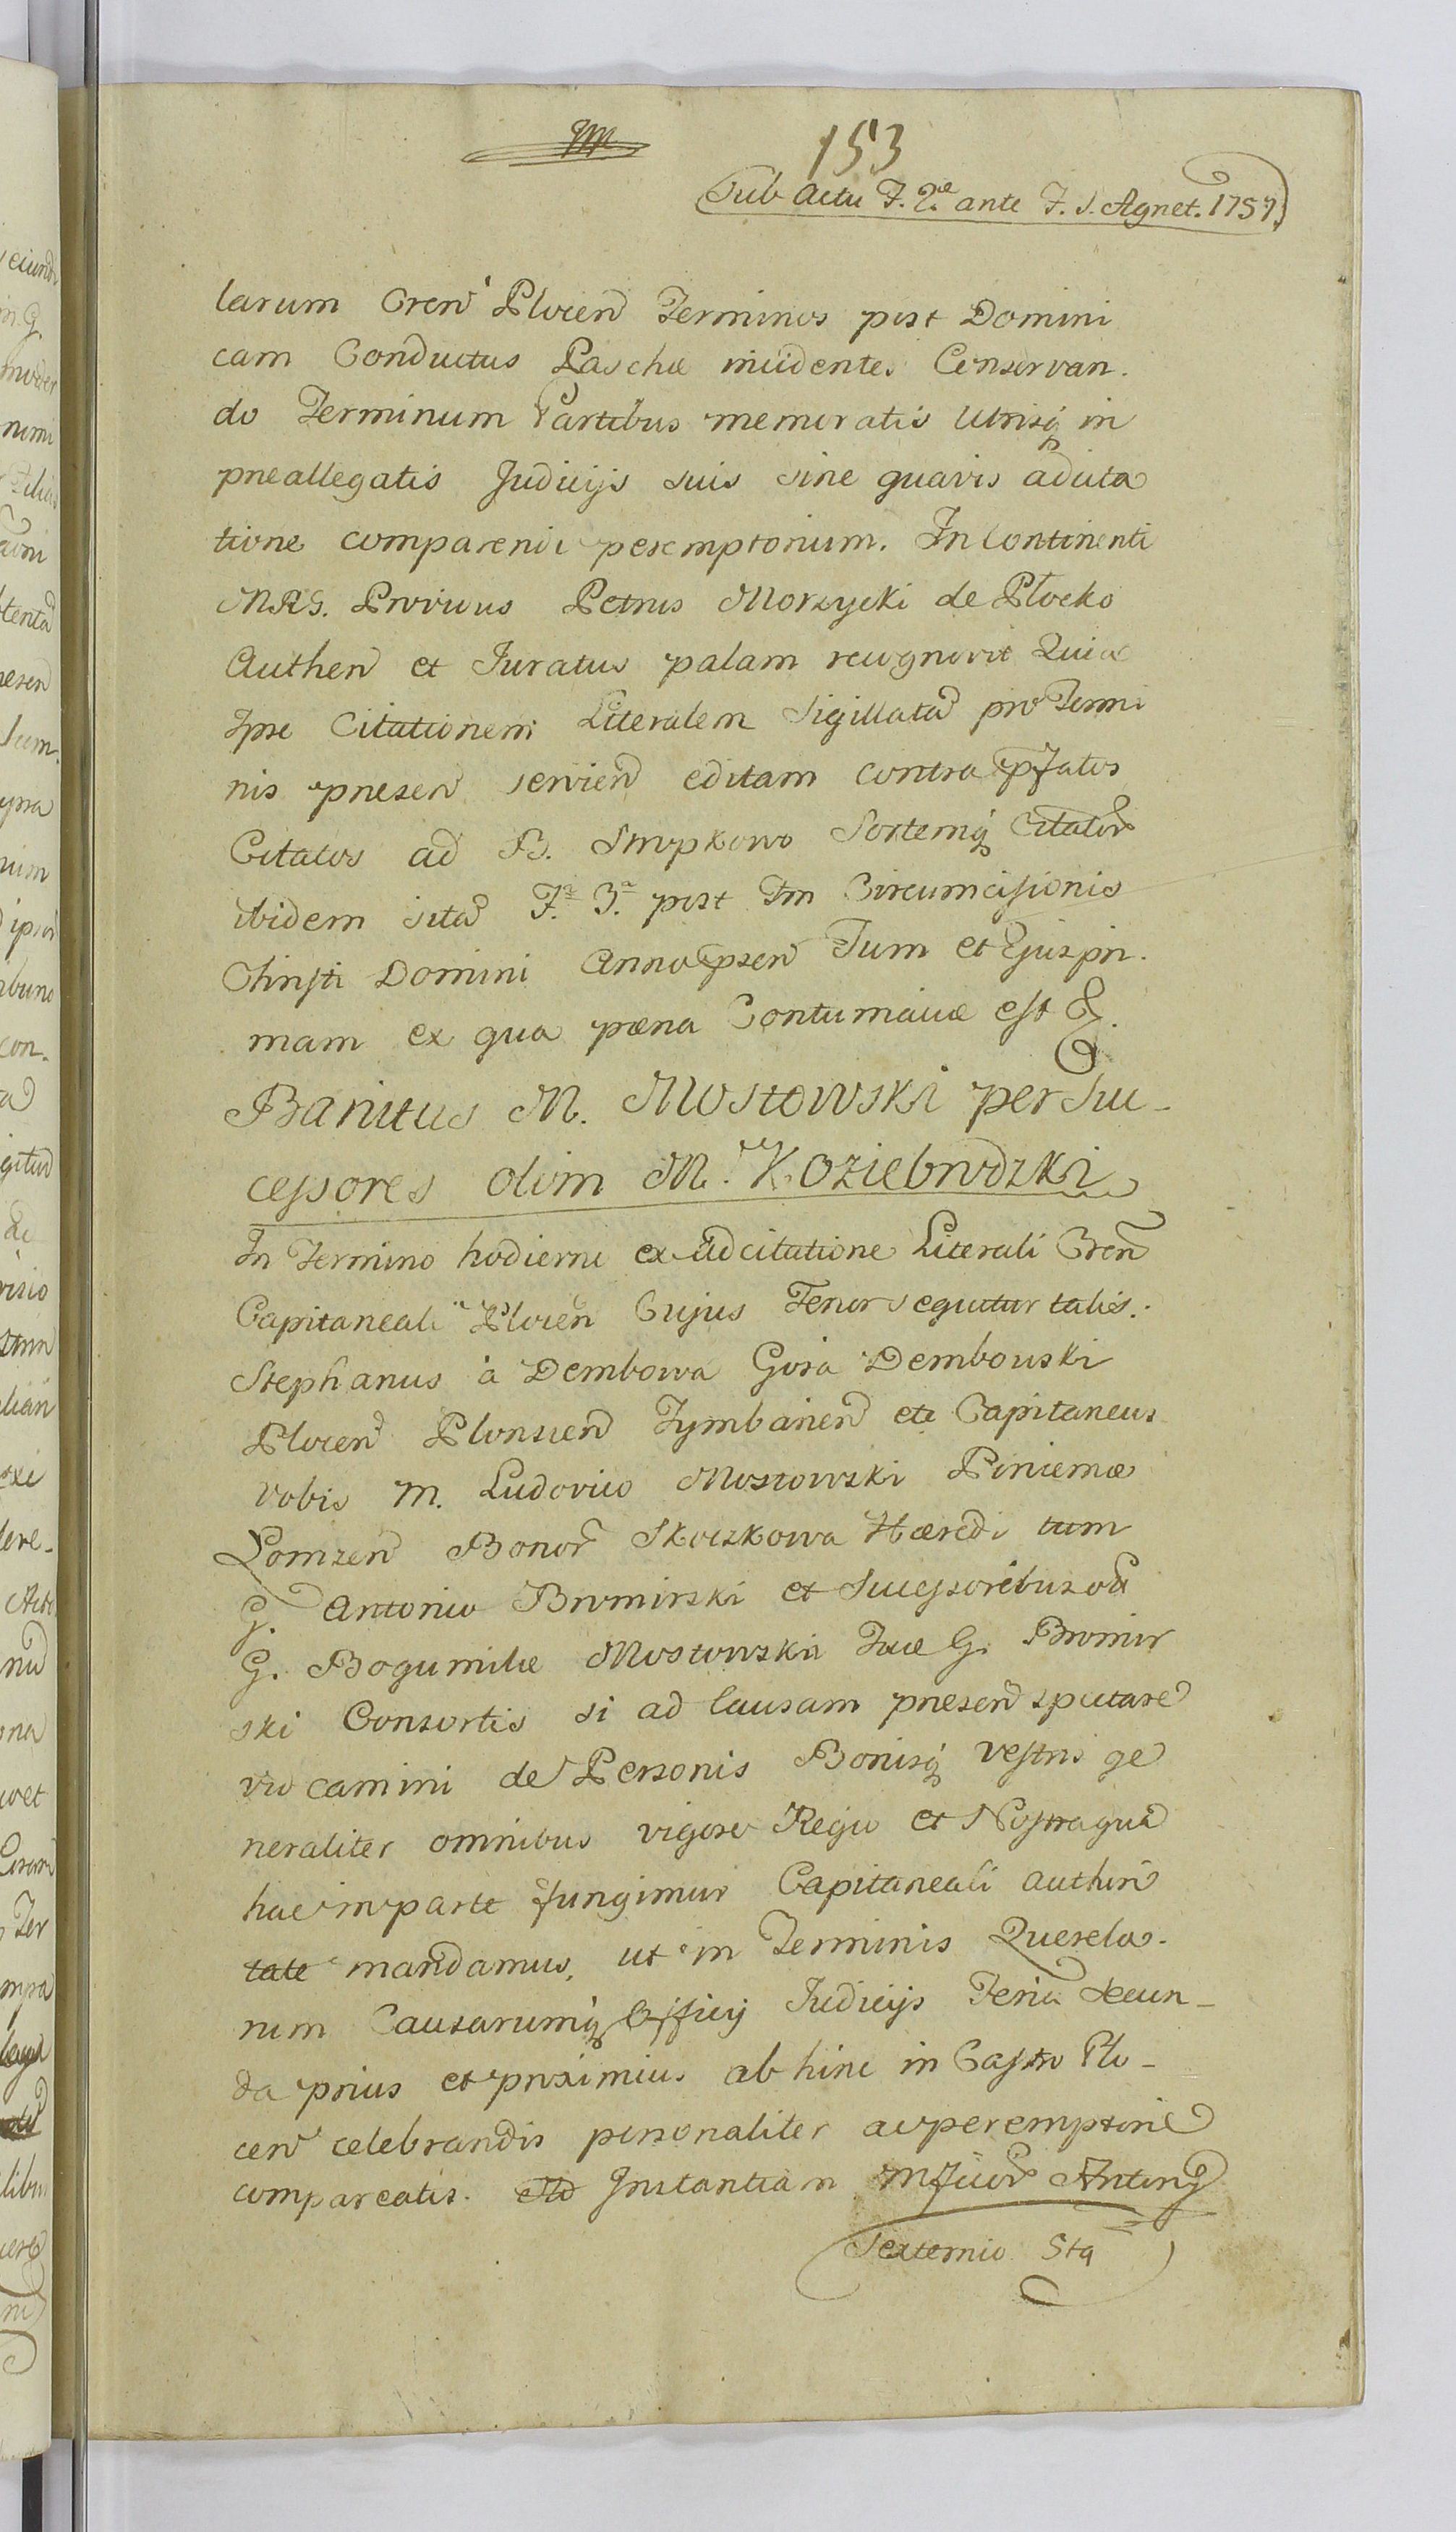 153
Sub Actu F. 2ae ante F. S. Agnet. 1757
larum Cren Plocen Terminos post Domini
cam Conductus Paschæ incidentes Conservan.
do Terminum Partibus memoratis Utrisq in
preallegatis Judicijs suis sine quavis adcita
tione comparendi peremptorium. In Continenti
MRG. Providus Petrus Morzycki de Płocko
Authen et Juratus palam recognovit Quia
Ipse Citationem Literalem Sigillatã pro Termi
nis presen servien editam contra pfatos
Citatos ad B. Srupkowo Sortemq Citator
ibidem sitã F. 3a post Fm Circumcisionis
Christi Domini Anno psen Tum et Ejus pri.
mam ex qua pæna Contumaciæ est &.
Banitus M. Mostowski per Suc-
cessores olim M. Koziebrodzki
In Termino hodierno ex adcitatione Literali Cren
Capitaneali Plocen Cujus Tenor sequitur talis.
Stephanus à Dembowa Gora Dembowski
Plocen Plonscen Tymbarien etc Capitaneus
vobis M. Ludovico Mostowski Pincernæ
Lomzen Bonor Skoczkowa Hæredi tum
G. Antonio Bromirski et Successoribus oli
G. Bogumilæ Mostowska Tuæ G. Bromir
ski Consortis si ad Causam presen spectare
vio camini de Personis Bonisq vestris ge
neraliter omnibus vigore Regio et Nostra qua
hac in parte fungimur Capitaneali authori
tate mandamus, ut in Terminis Querela.
rum Causarumq Officij Judicijs Feria secun-
da prius et proximius ab hinc in Castro Plo-
cen celebrandis personaliter ac peremptorie
compareatis. Ad Instantiam
Sexternio Sta